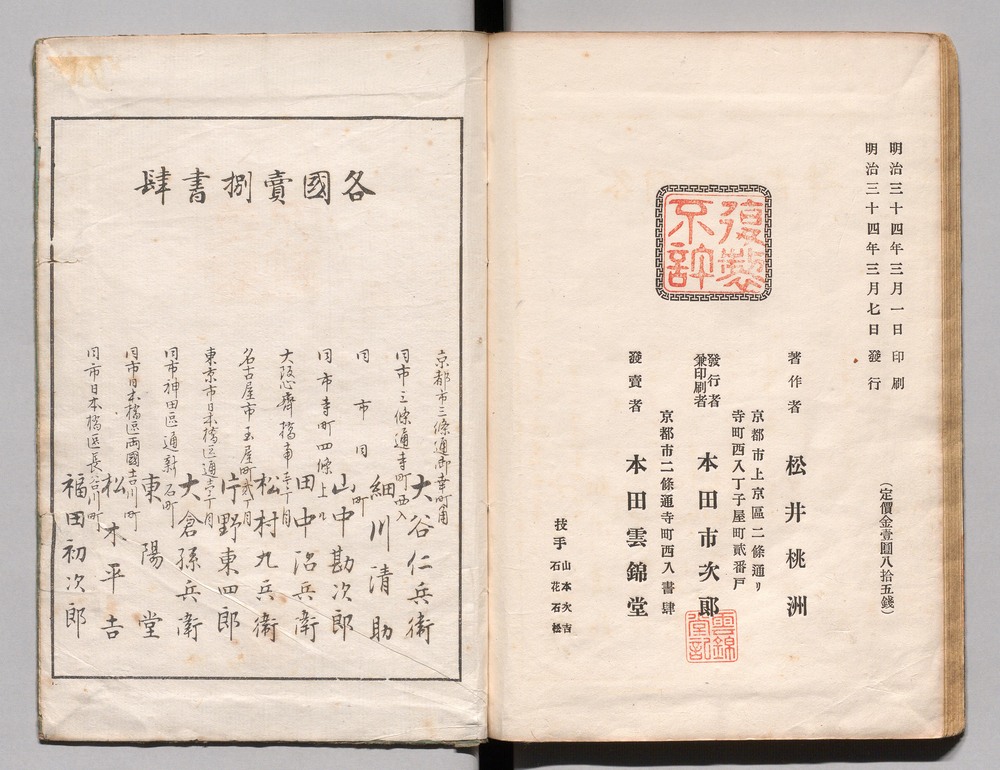 明治三十四年三月一日印刷
明治三十四年三月七日發行
(定價金壹圓八拾五錢)
復製
不許
著作者 松井桃洲
京都市上京區二條通リ
寺町西入丁子屋町貳番戸
發行者
兼印刷者
本田市次郎
雲錦
堂記
京都市二條通寺町西入書肆
發賣者 本田雲錦堂
技手
山本次吉
石花石松
各國賣捌書肆
京都市三條通御幸町角 大谷仁兵衛
同市三條通寺町西入 細川清助
同市同町 山中勘次郎
同市寺町四條上ル 田中治兵衛
大阪心齋橋南壱丁目 松村九兵衛
名古屋市玉屋町貳丁目 片野東四郎
東京市日本橋區通壱丁目 大倉孫兵衛
同市神田區通新石町 東陽堂
同市日本橋區両國吉川町 松木平吉
同市日本橋區長谷川町 福田初次郎